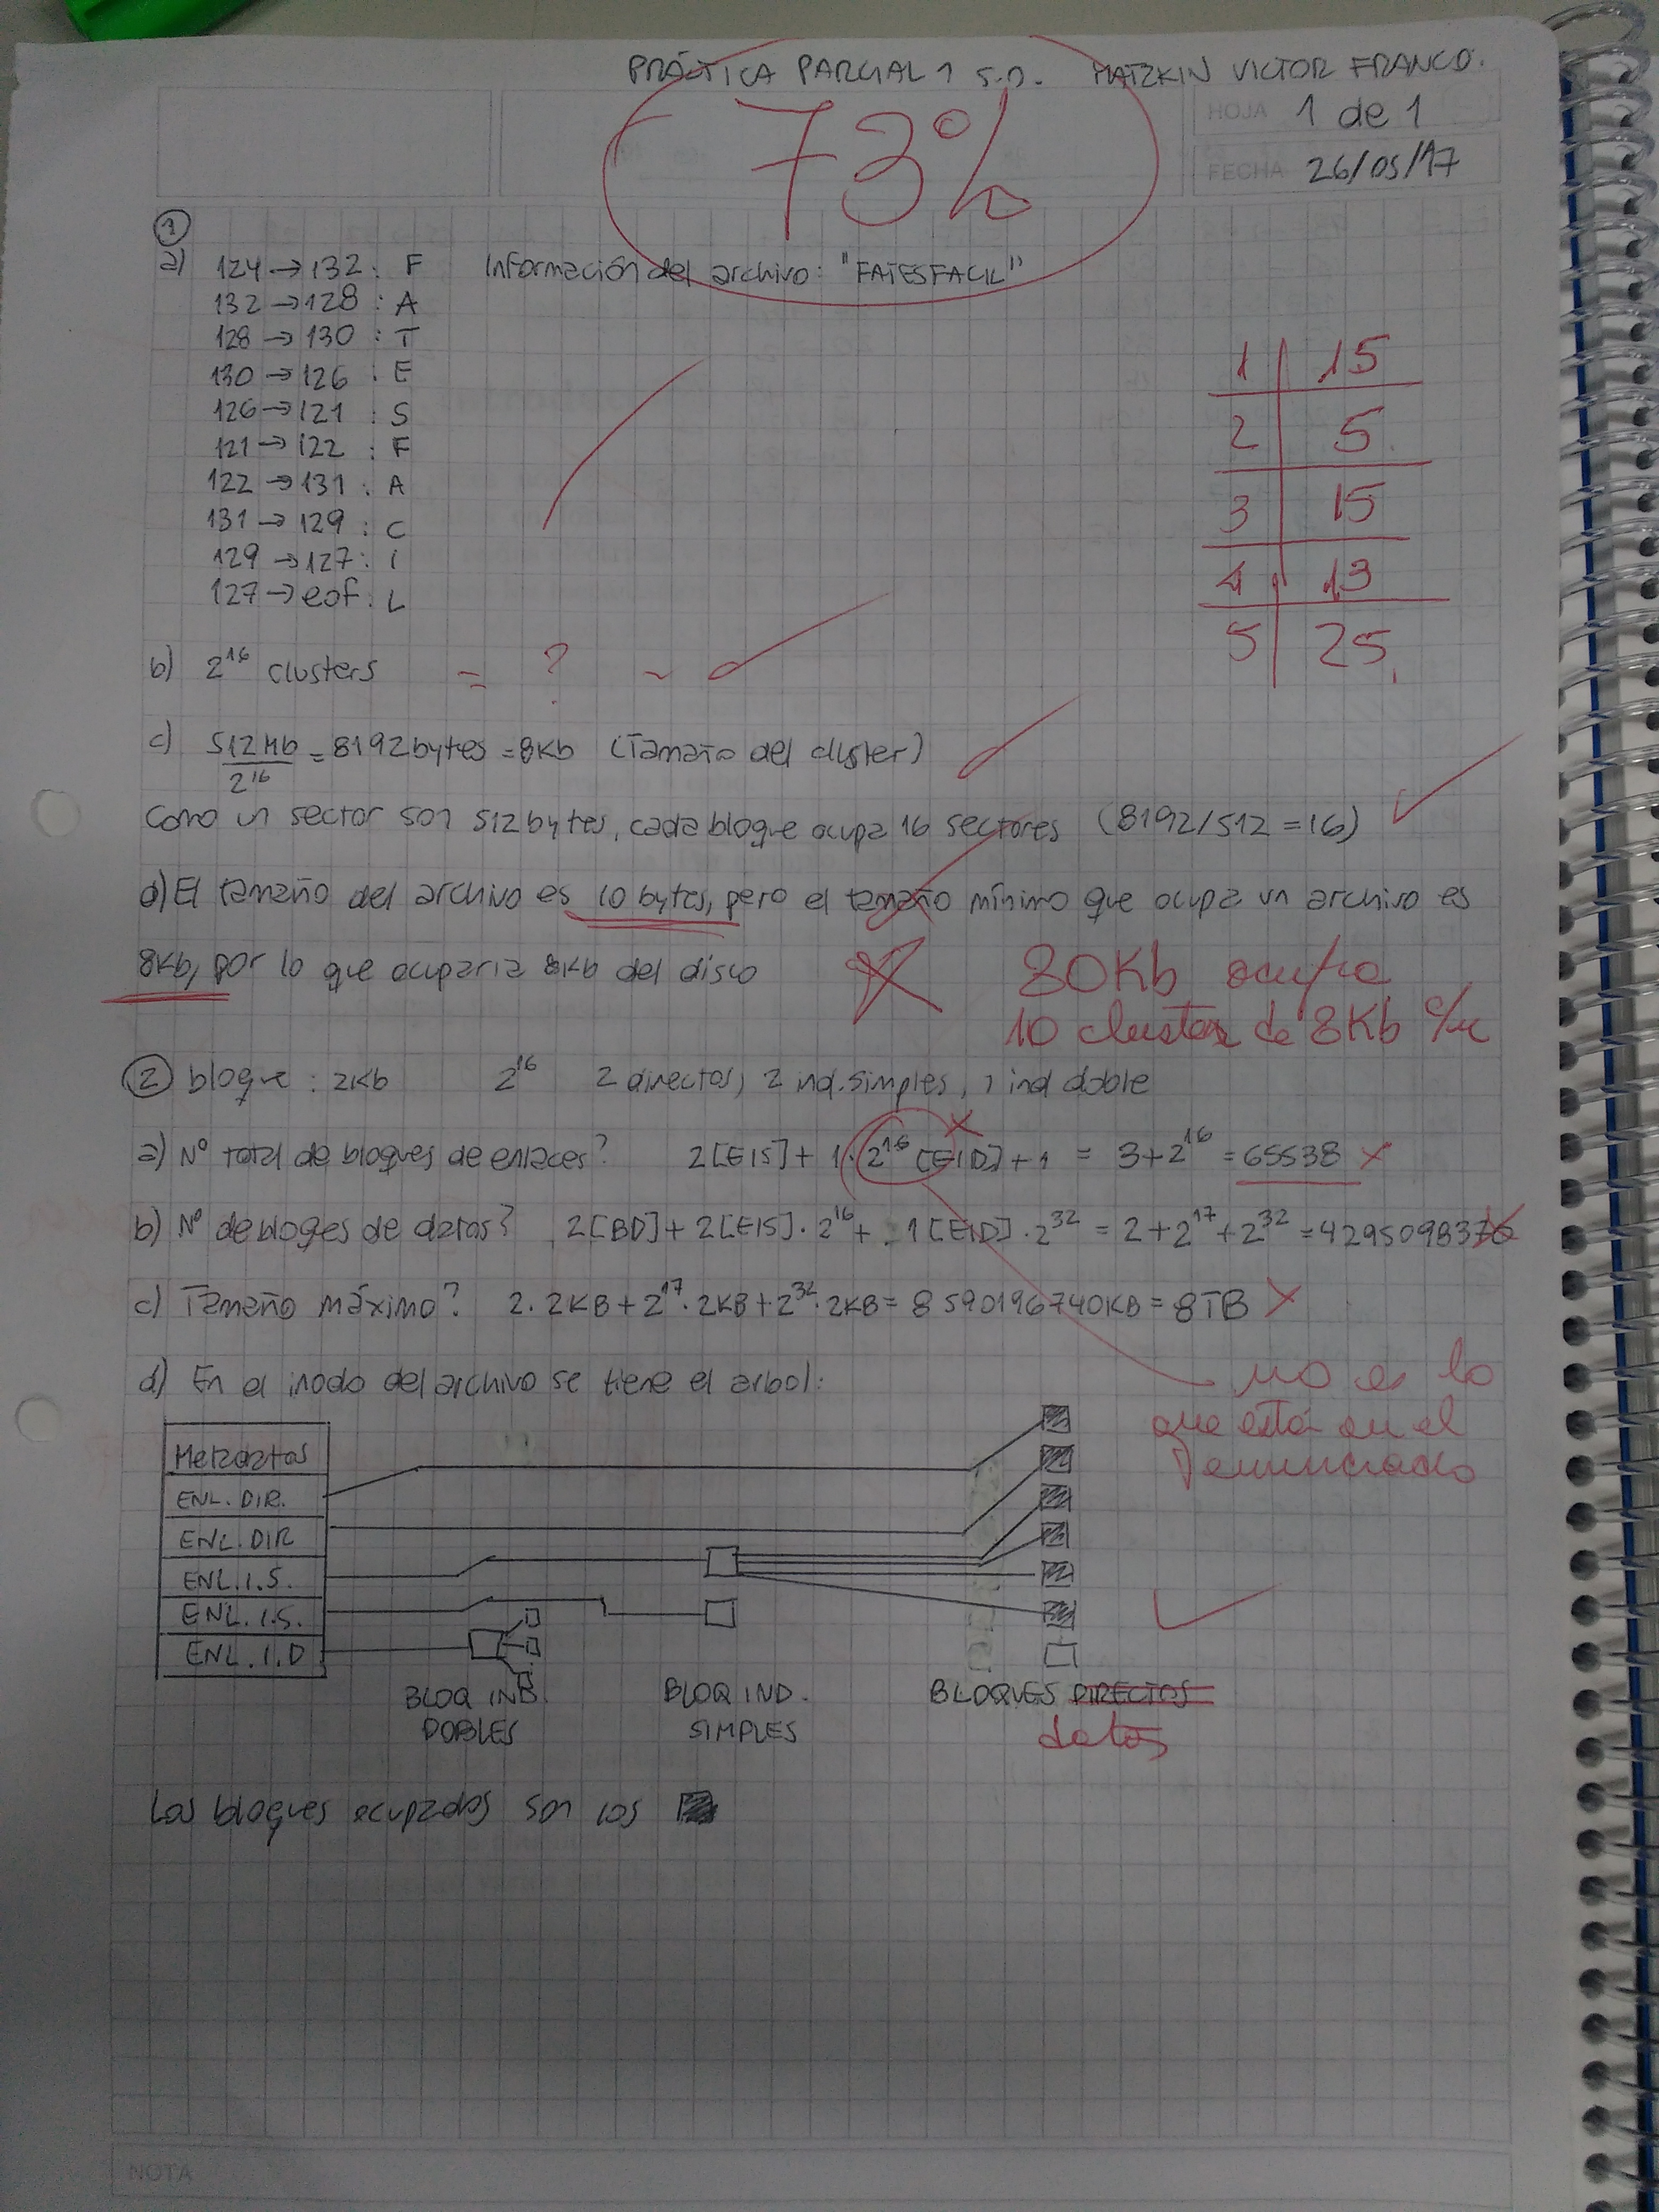 PRÁCTICA PARCIAL 1 S.O. MATZKIN VICTOR FRANCO.
HOJA 1 de 1
FECHA 26/05/17
73%
1
a) 124→132: F Información del archivo: "FATESFACIL"
132→128: A
128→130: T
130→126: E
126→121: S
121→122: F
122→131: A
131→129: C
129→127: I
127→eof: L
1 15
2 5
3 15
4 13
5 25
b) 2^16 clusters = ?
c) 512Mb/2^16 = 8192bytes = 8Kb (Tamaño del cluster)
como un sector son 512bytes, cada bloque ocupa 16 sectores (8192/512=16)
d) El tamaño del archivo es 10 bytes, pero el tamaño mínimo que ocupa un archivo es
8Kb, por lo que ocuparia 8Kb del disco
80Kb ocupa
10 clusters de 8Kb c/u
2 bloque: 2Kb 2^16 2 directos, 2 ind.simples, 1 ind doble
a) N° total de bloques de enlaces? 2[EIS]+1·2^16[EID]+1 = 3+2^16 = 65538
b) N° de bloqes de datos? 2[BD]+2[EIS]·2^16+1[EID]·2^32 = 2+2^17+2^32 = 4295098370
c) Tamaño máximo? 2.2KB+2^17·2KB+2^32·2KB = 8590196740KB = 8TB
no es lo
que está en el
enunciado
d) En el inodo del archivo se tiene el arbol:
Metadatos
ENL. DIR.
ENL. DIR
ENL. I.S.
ENL. I.S.
ENL. I.D
BLOQ IND. DOBLES
BLOQ IND. SIMPLES
BLOQUES DIRECTOS
datos
Los bloques ocupados son los
NOTA